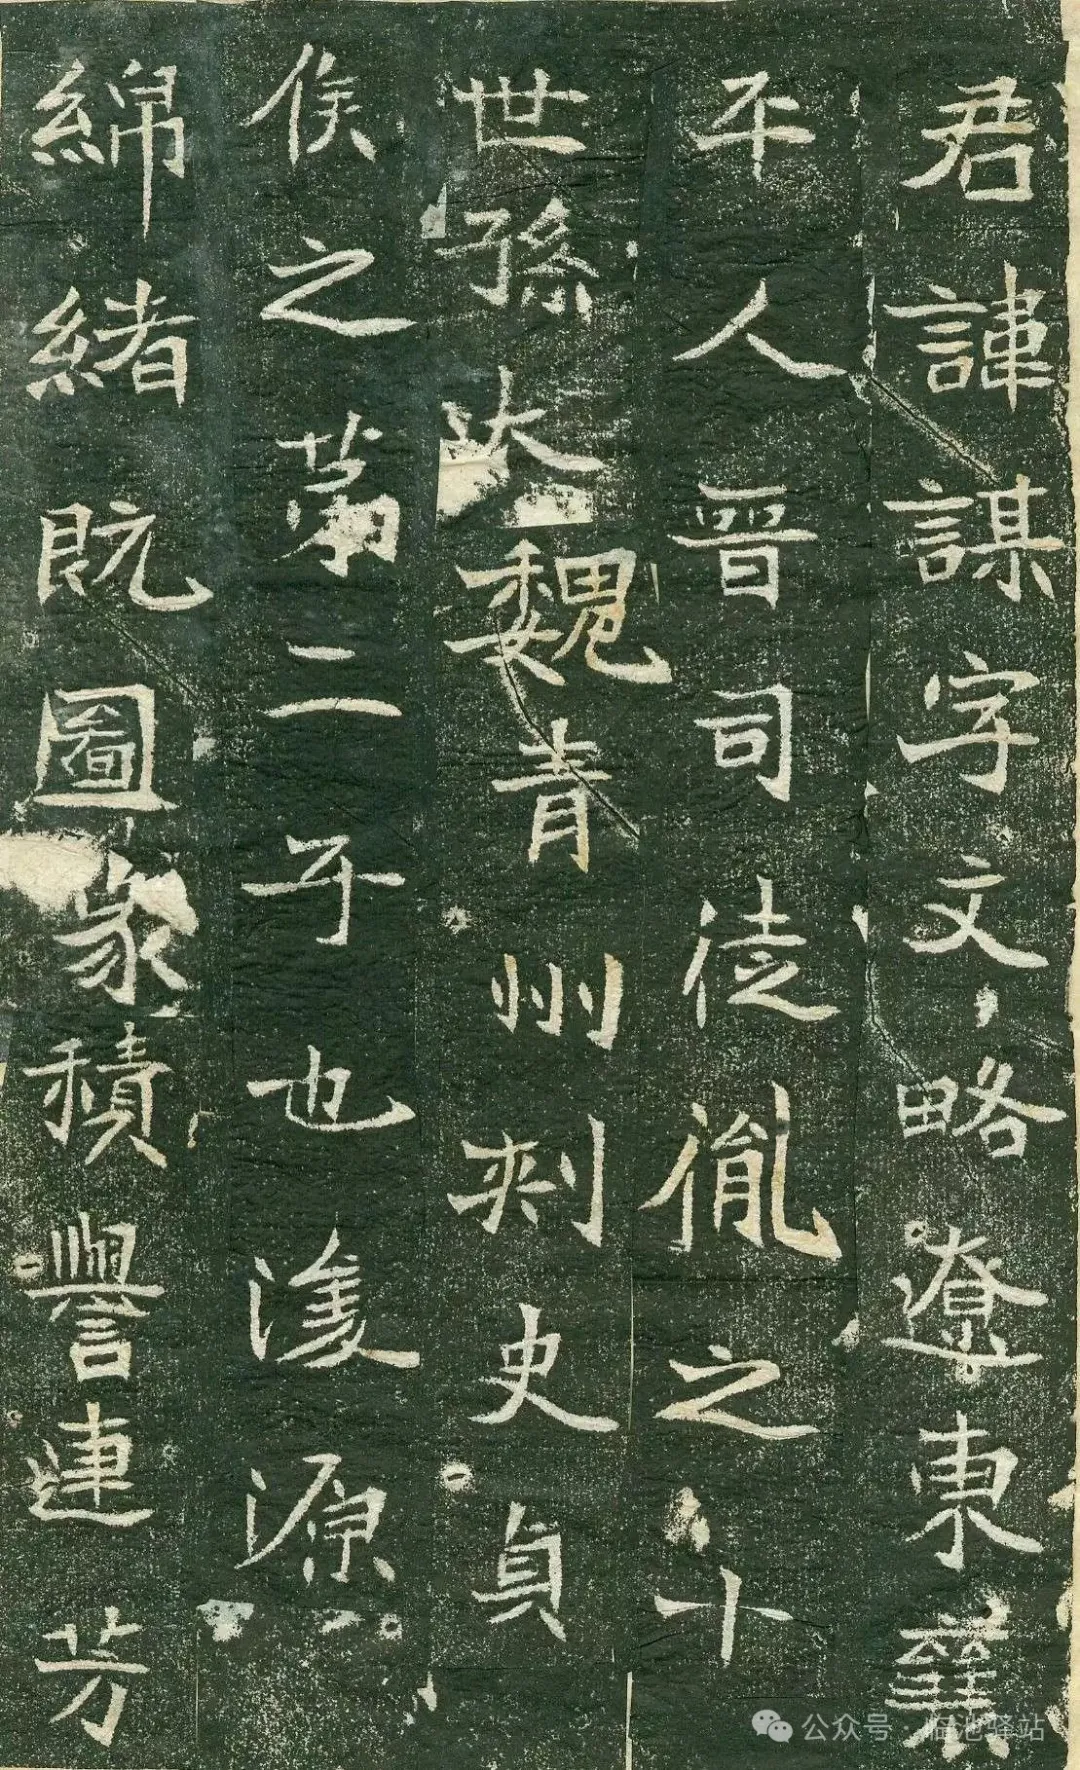 君諱謀字文略遼東襄
平人晉司徒胤之十
世孫大魏青州刺史貞
侯之第二子也濬源
綿緒既圖篆積譽連芳
公众号·临池驿站